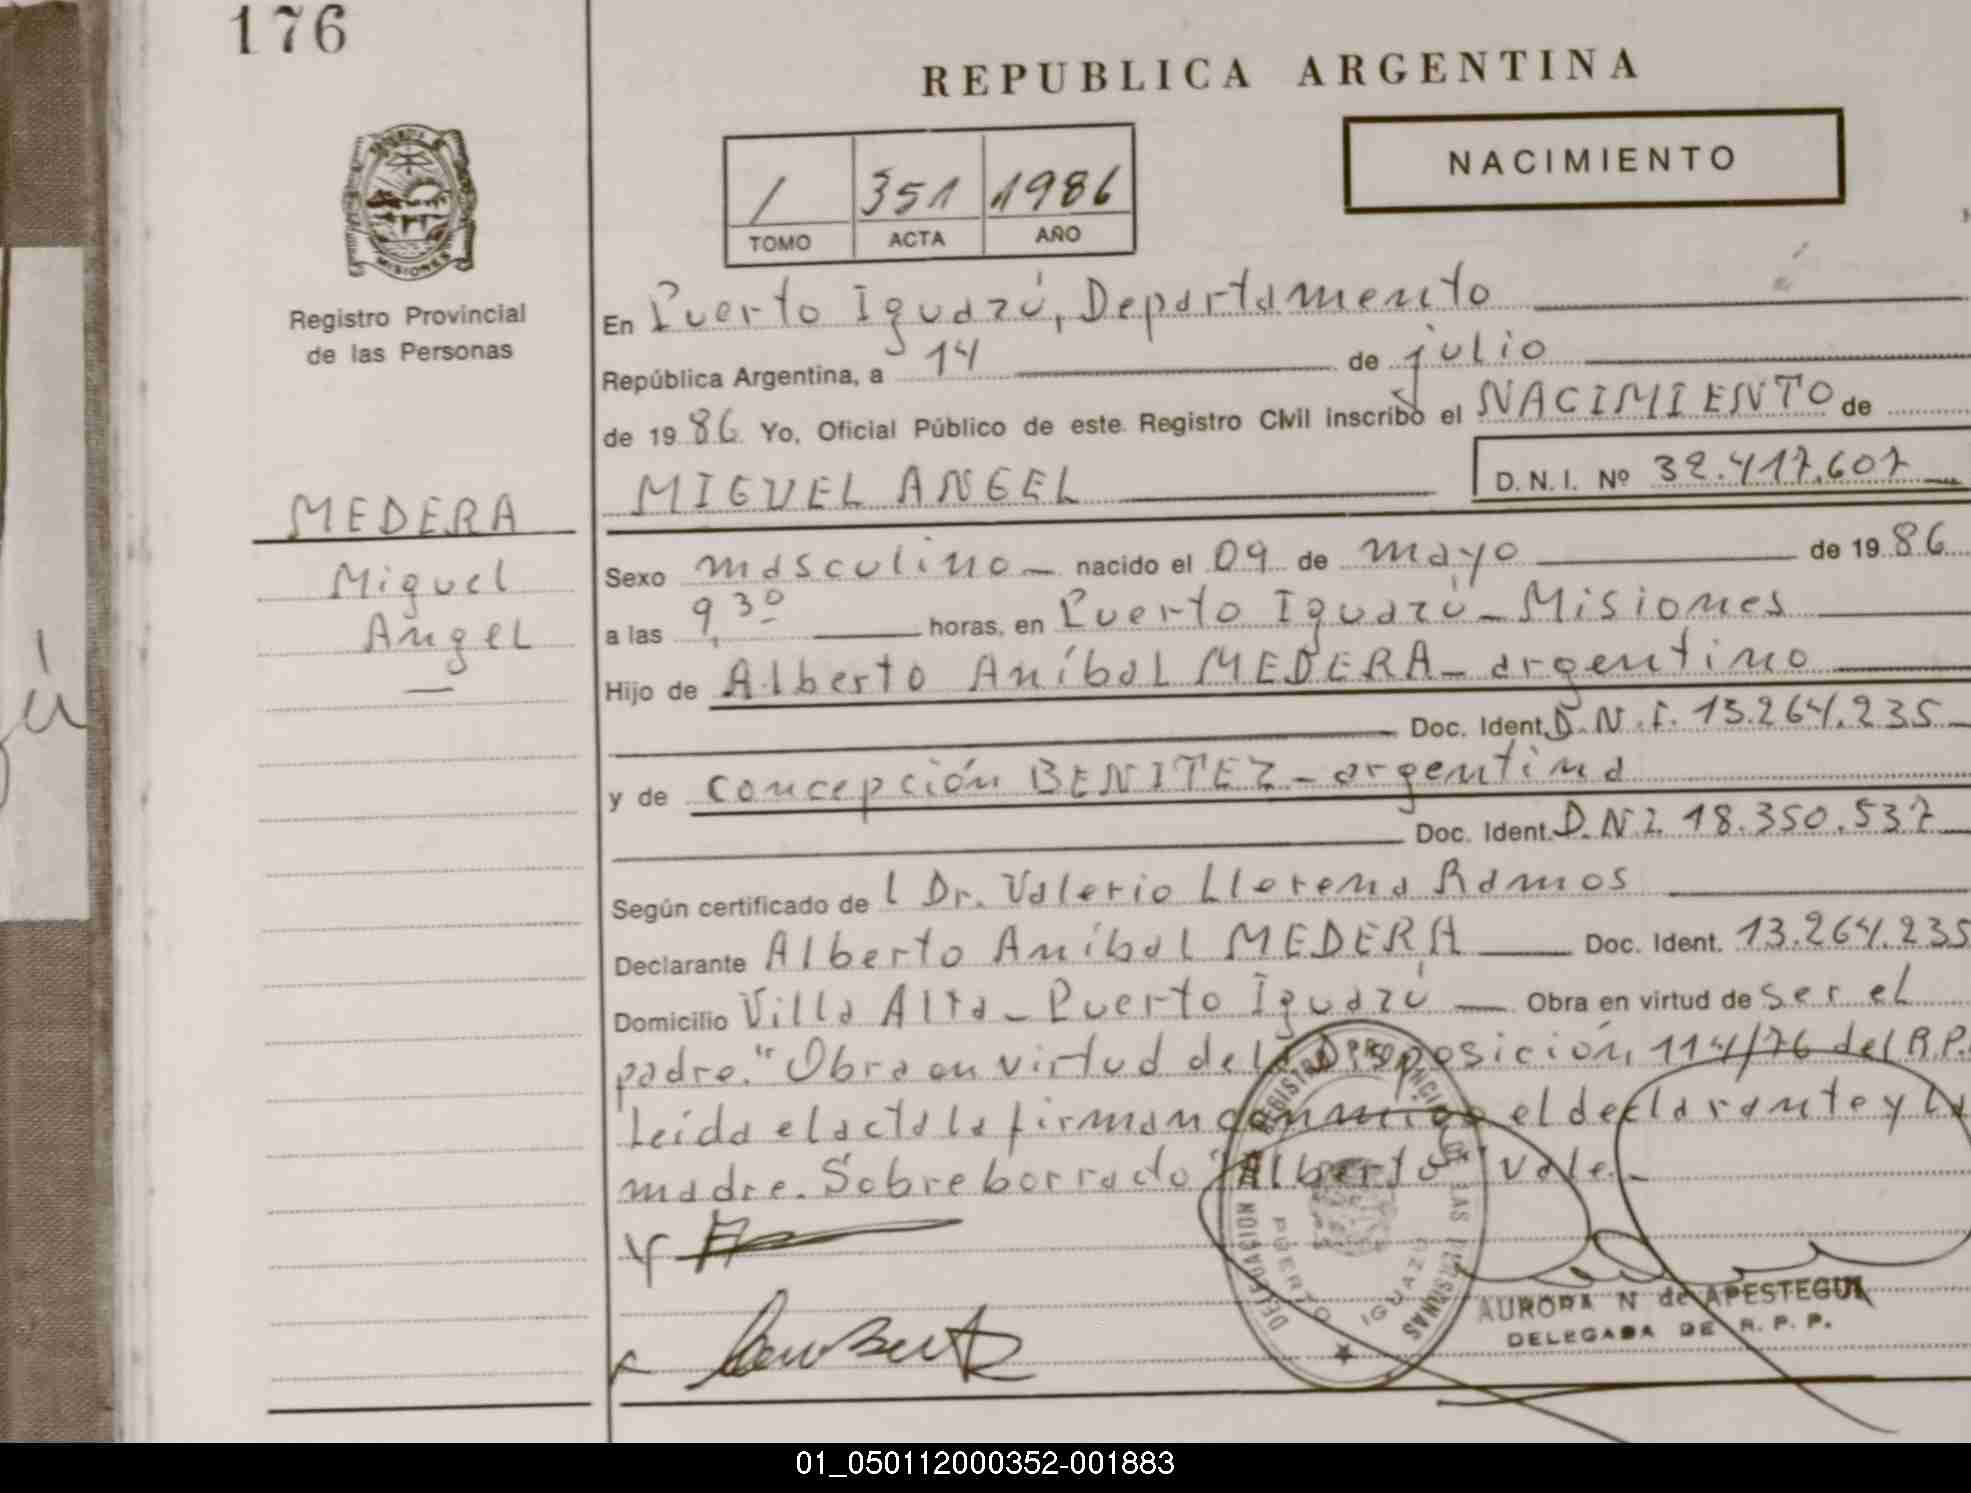 176
REPUBLICA ARGENTINA
NACIMIENTO
1 351 1986
TOMO ACTA AÑO
MISIONES
Registro Provincial
de las Personas
En Puerto Iguazú, Departamento
República Argentina, a 14 de julio
de 1986 Yo, Oficial Público de este Registro Civil inscribo el NACIMIENTO de
MIGUEL ANGEL D.N.I. Nº 32.417.607
MEDERA
Miguel
Angel
Sexo masculino nacido el 09 de mayo de 1986
a las 9,30 horas, en Puerto Iguazú - Misiones
Hijo de Alberto Aníbal MEDERA - argentino
Doc. Ident. D.N.I. 13.264.235
y de Concepción BENITEZ - argentina
Doc. Ident. D.N.I. 18.350.537
Según certificado de l Dr. Valerio Llerena Ramos
Declarante Alberto Aníbal MEDERA Doc. Ident. 13.264.235
Domicilio Villa Alta - Puerto Iguazú Obra en virtud de ser el
padre. "Obra en virtud de la Disposición, 114/76 del R.P.
Leída el acta la firman conmigo el declarante y la
madre. Sobreborrado "Alberto" Vale.
REGISTRO PROVINCIAL DE LAS PERSONAS
DELEGACION
PUERTO IGUAZU
AURORA N de APESTEGUI
DELEGADA DE R. P. P.
01_050112000352-001883